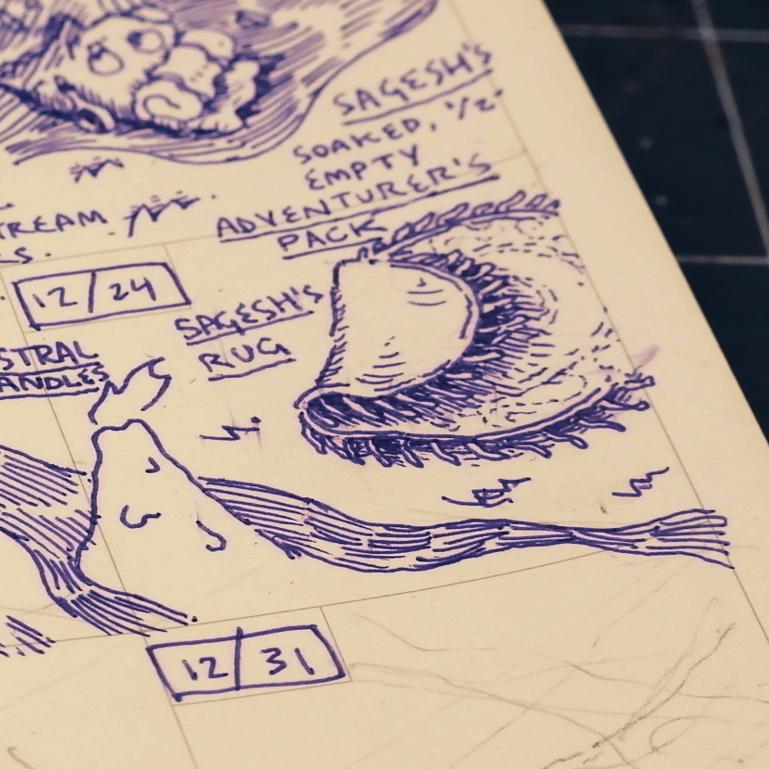 SAGESH'S
SOAKED, 1/2"
EMPTY
ADVENTURER'S
PACK
TREAM
S.
12/24
SAGESH'S
RUG
STRAL
ANDLES
12/31